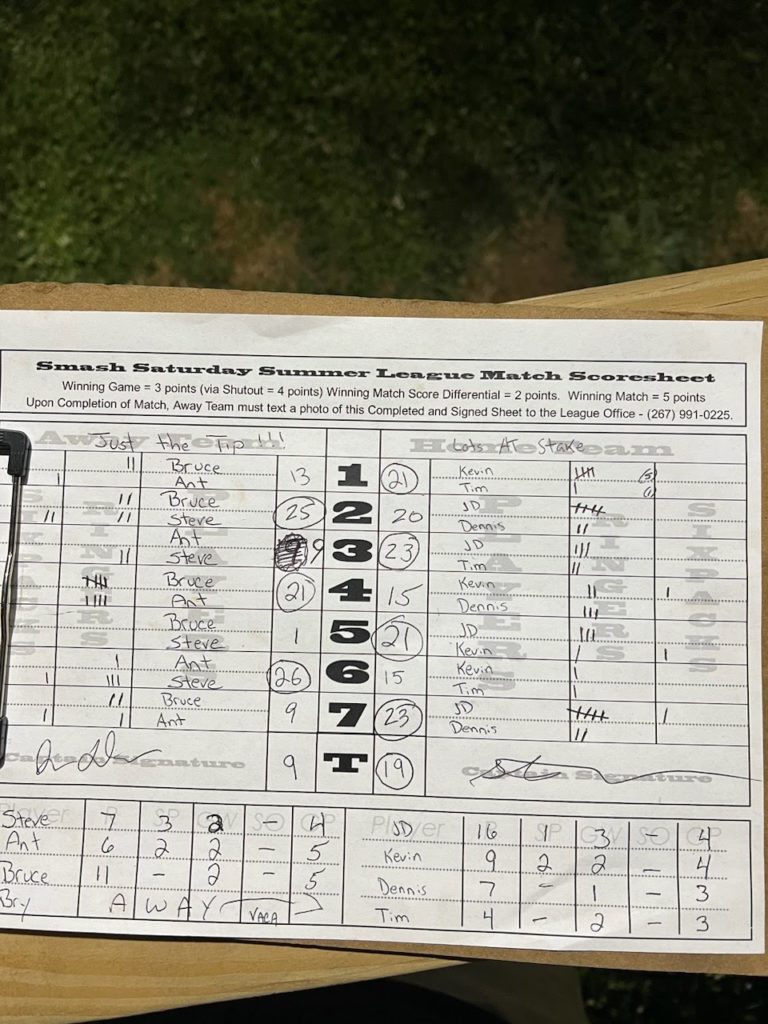 Smash Saturday Summer League Match Scoresheet
Winning Game = 3 points (via Shutout = 4 points) Winning Match Score Differential = 2 points. Winning Match = 5 points
Upon Completion of Match, Away Team must text a photo of this Completed and Signed Sheet to the League Office - (267) 991-0225.
Just the Tip!!! Lots At Stake
Bruce 13 1 21 Kevin
Ant Tim
Bruce 25 2 20 JD
Steve Dennis
Ant 9 3 23 JD
Steve Tim
Bruce 21 4 15 Kevin
Ant Dennis
Bruce 1 5 21 JD
Steve Kevin
Ant 26 6 15 Kevin
Steve Tim
Bruce 9 7 23 JD
Ant Dennis
Captain Signature 9 T 19 Captain Signature
Player SP GW SO GP Player SP GW SO GP
Steve 7 3 2 - 4 JD 16 1 3 - 4
Ant 6 2 2 - 5 Kevin 9 2 2 - 4
Bruce 11 - 2 - 5 Dennis 7 - 1 - 3
Bry AWAY VACA Tim 4 - 2 - 3